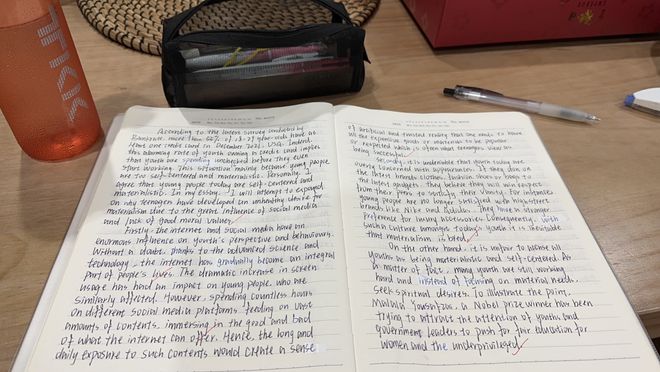 According to the latest survey conducted by
Bankrate, more than 62% of 18-29 year-olds have at
least one credit card in December 2021, USA. Indeed,
this alarming rate of youth owning a credit card implies
that youth are spending unchecked before they even
start working. This situation mainly because young people
are too self-centered and materialistic. Personally, I
agree that young people today are self-centered and
materialistic. In my essay, I will attempt to expound
on why teenagers have developed an unhealthy desire for
materialism due to the great influence of social media
and lack of good moral values.
Firstly, the internet and social media have an
enormous influence on youth's perspective and behaviours.
Without a doubt, thanks to the advanced science and
technology, the internet how gradually become an integral
part of people's lives. The dramatic increase in screen
usage has had an impact on young people, who are
similarly affected. However, spending countless hours
on different social media platforms, feeding on vast
amounts of contents, immersing in the good and bad
of what the internet can offer. Hence, the long and
daily exposure to such contents would create a sense
of artificial and twisted reality that one needs to have
all the expensive goods or materials to be popular
or respected which is often what teenagers view as
being successful.
Secondly, it is undeniable that youth today are
overly concerned with appearances. If they don on
the latest brands clothes, fashion shoes or bags to
the latest gadgets. They believe they will win respect
from their peers, to satisfy their vanity. For instance,
young people are no longer satisfied with high-street
brands like Nike and Adidas. They have a stronger
preference for luxury accessories. Consequently, with
such culture amongst today's youth, it is inevitable
that materialism is bred.
On the other hand, it is unfair to accuse all
youths as being materialistic and self-centered. As
a matter of fact, many youth are still working
hard and instead of focusing on material needs,
seek spiritual desires. To illustrate the point,
Malala Yousafzai, a Nobel prize winner has been
trying to attract the attention of youths and
government leaders to push for fair education for
women and the underprivileged.